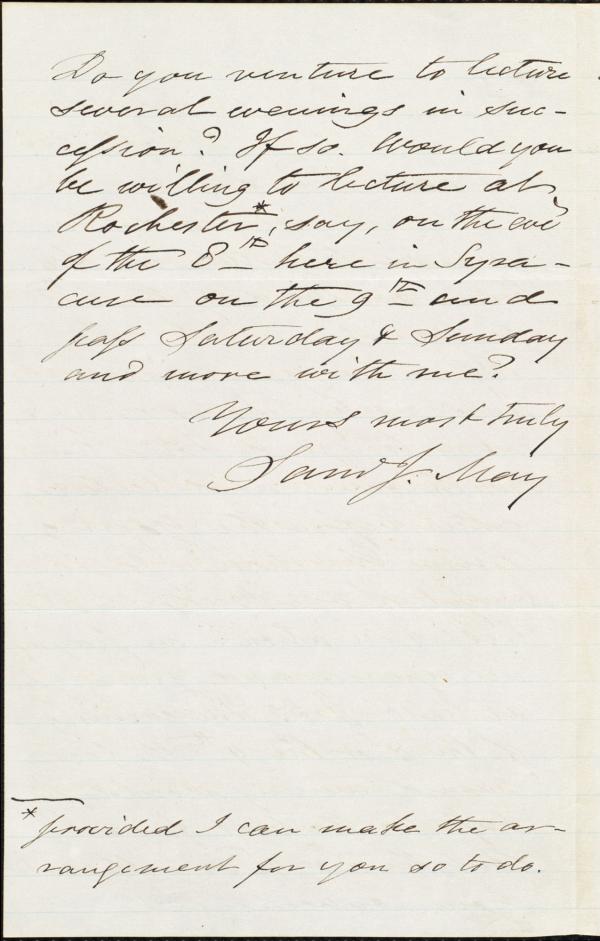 Do you venture to lecture
several evenings in suc-
cession? If so. Would you
be willing to lecture at
Rochester*, say, on the eve
of the 8th here in Syra-
cuse on the 9th and
pass Saturday & Sunday
and more with me?
Yours most truly
Saml J. May
* provided I can make the ar-
rangement for you so to do.